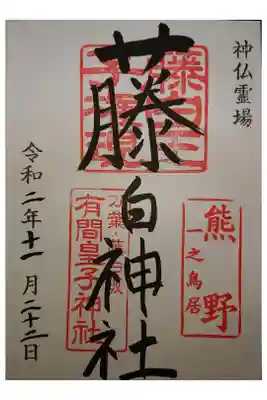 神仏霊場
藤白神社
熊野
一之鳥居
有間皇子神社
令和二年十一月二十二日